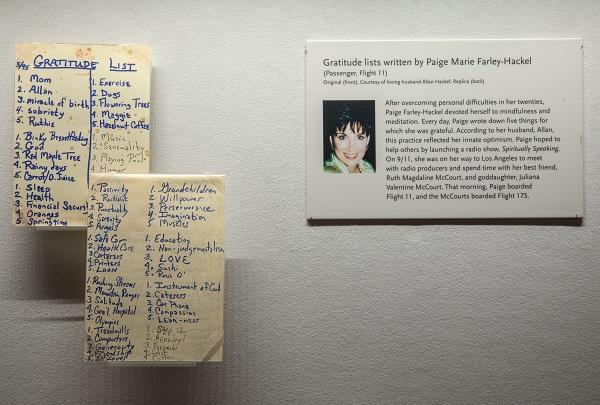 3/95 GRATITUDE LIST
1. Mom
2. Allan
3. miracle of birth
4. sobriety
5. Ruthie
1. Binky Breastfeeding
2. God
3. Red Maple Tree
4. Rainy Days
5. Carrot/O. Juice
1. Sleep
2. Health
3. Financial Security
4. Oranges
5. Springtime
1. Exercise
2. Dogs
3. Flowering Trees
4. Maggie
5. Hazelnut Coffee
1. Music
2. Sensuality
3. Playing
4. Humor
1. Positivity
2.
3. Punctuality
4. Serenity
5. Angels
1. Safe Car
2. Health Care
3. Caterers
4. Printers
5. Loan
1. Rushing Streams
2. Mountain Ranges
3. Solitude
4. Hospital
5. Olympics
1. Treadmills
2. Computers
3. Generosity
4. Friendship
5.
1. Grandchildren
2. Willpower
3. Perserverance
4. Imagination
5. Muscles
1. Education
2. Non-judgementalism
3. LOVE
4. Sushi
5.
1. Instrument of God
2. Caterers
3. Car Phone
4. Compassion
5. Lean-ness
1. Step 12
2. Benadryl
3. Pyramids
4.
5.
Gratitude lists written by Paige Marie Farley-Hackel
(Passenger, Flight 11)
Original (front), Courtesy of loving husband Allan Hackel; Replica (back)
After overcoming personal difficulties in her twenties,
Paige Farley-Hackel devoted herself to mindfulness and
meditation. Every day, Paige wrote down five things for
which she was grateful. According to her husband, Allan,
this practice reflected her innate optimism. Paige hoped to
help others by launching a radio show, Spiritually Speaking.
On 9/11, she was on her way to Los Angeles to meet
with radio producers and spend time with her best friend,
Ruth Magdaline McCourt, and goddaughter, Juliana
Valentine McCourt. That morning, Paige boarded
Flight 11, and the McCourts boarded Flight 175.